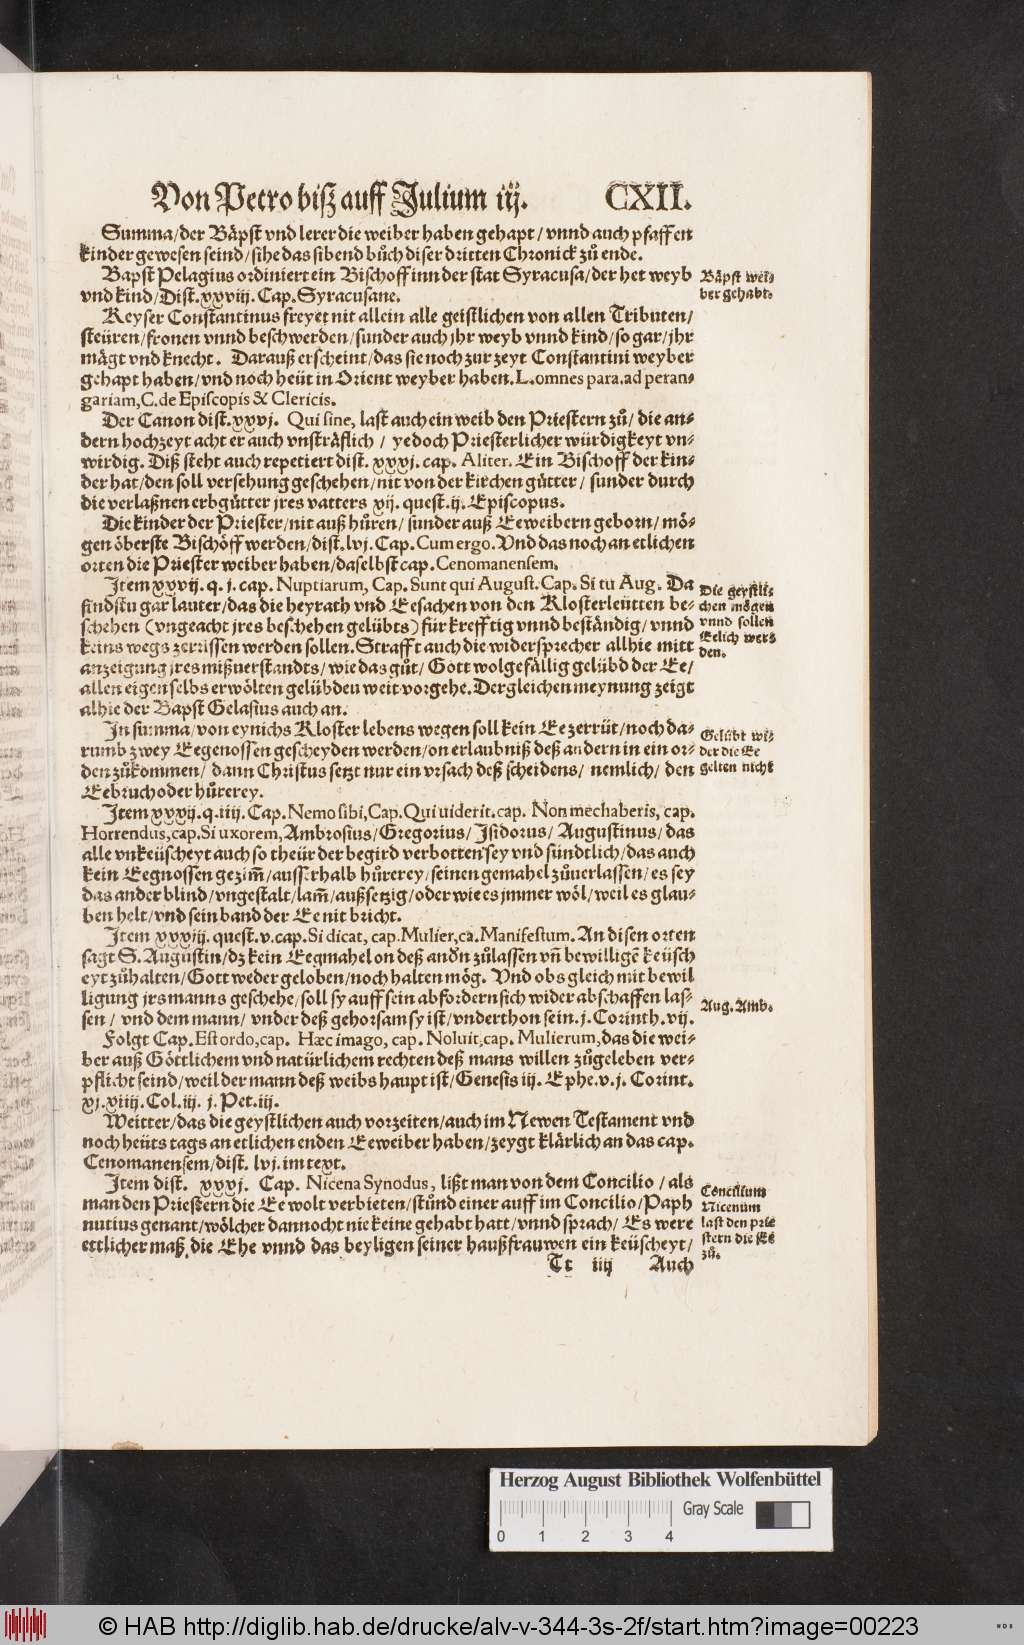 Von Petro biß auff Julium iij. CXII.
Summa/der Bäpst vnd lerer die weiber haben gehapt/vnnd auch pfaffen
kinder gewesen seind/sihe das sibend bůch diser dritten Chronick zů ende.
Bapst Pelagius ordiniert ein Bischoff inn der stat Syracusa/der het weyb
vnd kind/Dist.xxviij.Cap.Syracusane.
Bäpst wei-
ber gehabt.
Keyser Constantinus freyet nit allein alle geistlichen von allen Tributen/
steüren/fronen vnnd beschwerden/sunder auch jhr weyb vnnd kind/so gar/jhr
mägt vnd knecht. Darauß erscheint/das sie noch zur zeyt Constantini weyber
gehapt haben/vnd noch heüt in Orient weyber haben.L.omnes para.ad peran-
gariam,C.de Episcopis & Clericis.
Der Canon dist.xxvj. Qui sine, last auch ein weib den Priestern zů/die an-
dern hochzeyt acht er auch vnsträflich/ yedoch Priesterlicher würdigkeyt vn-
wirdig. Diß steht auch repetiert dist. xxxj. cap. Aliter. Ein Bischoff der kin-
der hat/den soll versehung geschehen/nit von der kirchen gütter/ sunder durch
die verlaßnen erbgütter jres vatters xij. quest.ij. Episcopus.
Die kinder der Priester/nit auß hůren/ sunder auß Eeweibern geborn/mö-
gen öberste Bischöff werden/dist.lvj.Cap.Cum ergo.Vnd das noch an etlichen
orten die Priester weiber haben/daselbst cap.Cenomanensem.
Item xxvij.q.j.cap. Nuptiarum, Cap.Sunt qui August.Cap.Si tu Aug. Da
findstu gar lauter/das die heyrath vnd Eesachen von den Klosterleütten be-
schehen (vngeacht jres beschehen gelübts) für krefftig vnnd beständig/vnnd
keins wegs zerrissen werden sollen.Strafft auch die widersprecher allhie mitt
anzeigung jres mißuerstandts/wie das gůt/Gott wolgefällig gelübd der Ee/
allen eigen selbs erwölten gelübden weit vorgehe.Dergleichen meynung zeigt
alhie der Bapst Gelasius auch an.
Die geystli-
chen mögen
vnnd sollen
Eelich wer-
den.
In summa/von eynichs Kloster lebens wegen soll kein Ee zerrüt/noch da-
rumb zwey Eegenossen gescheyden werden/on erlaubniß deß andern in ein or-
den zůkommen/ dann Christus setzt nur ein vrsach deß scheidens/ nemlich/ den
Eebruch oder hůrerey.
Gelübt wi-
der die Ee
gelten nicht
Item xxxij.q.iiij.Cap.Nemo sibi,Cap.Qui uiderit.cap. Non mechaberis, cap.
Horrendus,cap.Si uxorem,Ambrosius/Gregorius/Isidorus/Augustinus/das
alle vnkeüscheyt auch so theür der begird verbotten sey vnd sündtlich/das auch
kein Eegnossen gezim̃/ausserhalb hůrerey/seinen gemahel zůuerlassen/es sey
das ander blind/vngestalt/lam̃/außsetzig/oder wie es jmmer wöl/weil es glau-
ben helt/vnd sein band der Ee nit bricht.
Item xxxiij. quest.v.cap.Si dicat, cap.Mulier,ca.Manifestum. An disen orten
sagt S.Augustin/dz kein Eegmahel on deß andn zůlassen vñ bewilligẽ keüsch
eyt zůhalten/Gott weder geloben/noch halten mög. Vnd obs gleich mit bewil
ligung jrs manns geschehe/soll sy auff sein abfordern sich wider abschaffen las-
sen/ vnd dem mann/ vnder deß gehorsam sy ist/vnderthon sein.j.Corinth.vij.
Aug.Amb.
Folgt Cap.Est ordo,cap. Hæc imago, cap. Noluit,cap. Mulierum,das die wei-
ber auß Göttlichem vnd natürlichem rechten deß mans willen zůgeleben ver-
pflicht seind/weil der mann deß weibs haupt ist/Genesis iij. Ephe.v.j. Corint.
xj.xiiij.Col.iij. j.Pet.iij.
Weitter/das die geystlichen auch vorzeiten/auch im Newen Testament vnd
noch heüts tags an etlichen enden Eeweiber haben/zeygt klärlich an das cap.
Cenomanensem/dist. lvj. im text.
Item dist. xxxj. Cap. Nicena Synodus, lißt man von dem Concilio/als
man den Priestern die Ee wolt verbieten/stůnd einer auff im Concilio/Paph
nutius genant/wölcher dannocht nie keine gehabt hatt/vnnd sprach/ Es were
ettlicher maß die Ehe vnnd das beyligen seiner haußfrauwen ein keüscheyt/
Concilium
Nicenum
last den prie
stern die Ee
zů.
Tt iiij Auch
Herzog August Bibliothek Wolfenbüttel
Gray Scale
0 1 2 3 4
© HAB http://diglib.hab.de/drucke/alv-v-344-3s-2f/start.htm?image=00223